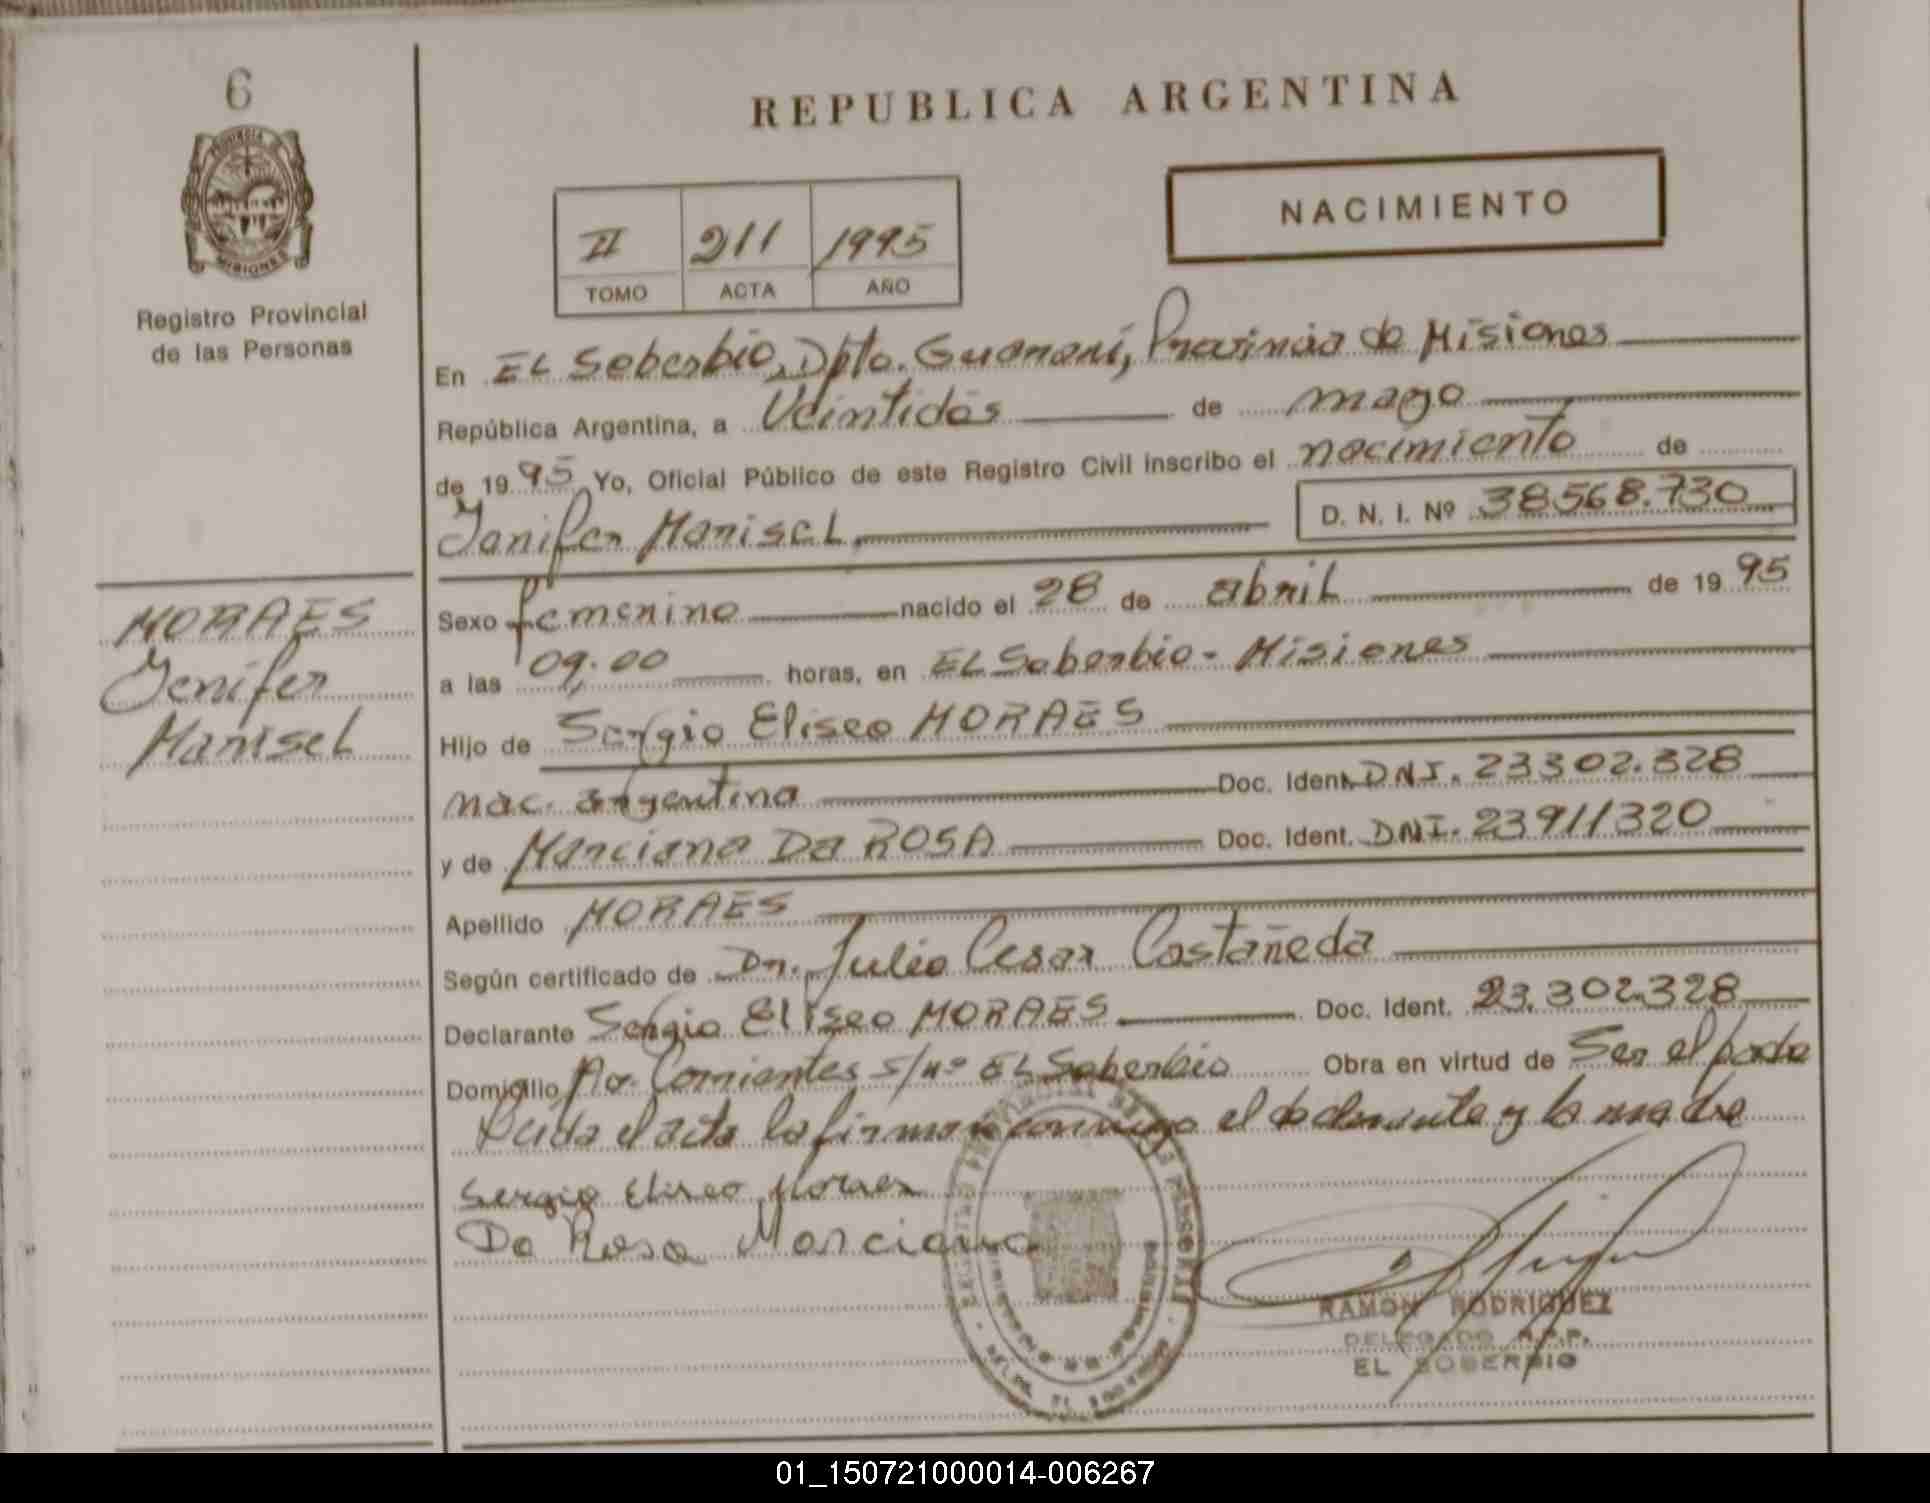 6
PROVINCIA DE
MISIONES
Registro Provincial
de las Personas
MORAES
Jenifer
Marisel
REPUBLICA ARGENTINA
NACIMIENTO
II 211 1995
TOMO ACTA AÑO
En EL Soberbio, Dpto. Guaraní, Provincia de Misiones
República Argentina, a Veintidós de mayo
de 1995 Yo, Oficial Público de este Registro Civil inscribo el nacimiento de
Jenifer Marisel D. N. I. Nº 38568.730
Sexo femenino nacido el 28 de abril de 1995
a las 09:00 horas, en EL Soberbio - Misiones
Hijo de Sergio Eliseo MORAES
nac. argentina Doc. Ident. DNI. 23302.328
y de Marciana Da ROSA Doc. Ident. DNI. 23911320
Apellido MORAES
Según certificado de Dr. Julio Cesar Castañeda
Declarante Sergio Eliseo MORAES Doc. Ident. 23.302.328
Domicilio Av. Corrientes S/nº EL Soberbio Obra en virtud de Ser el padre
Leida el acta la firman conmigo el declarante y la madre
Sergio Eliseo Moraes
Da Rosa Marciana
RAMON RODRIGUEZ
DELEGADO R.P.P.
EL SOBERBIO
01_150721000014-006267